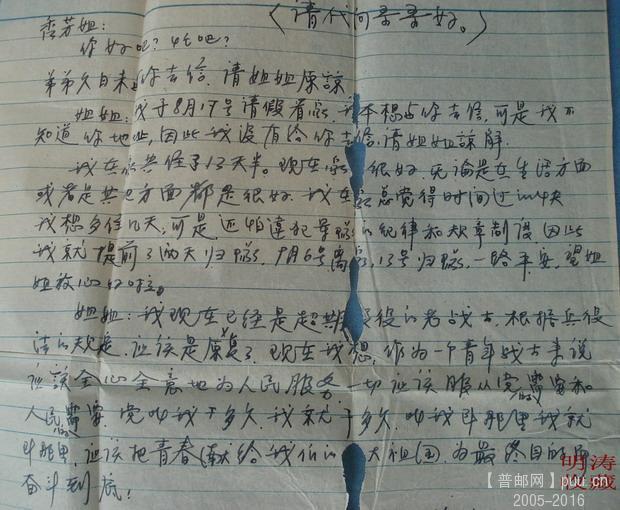 （请代问哥哥好。）
秀芳姐：
你好吧？忙吧？
弟弟久日未与你去信，请姐姐原谅
姐姐：我于8月17号请假看家，我本想与你去信，可是我不
知道你地址，因此我没有给你去信，请姐姐谅解
我在家共住了13天半。现在家 很好，无论是在生活方面
或者是其它方面都是很好 我在家总觉得时间过的快
我想多住几天，可是还怕违犯军队的纪律和规章制度 因此
我就提前了两天归队，9月6号离家，13号归队，一路平安，望姐
姐放心好啦。
姐姐：我现在已经是超期服役的老战士，根据兵役
法的规定，应该是复 了，现在我想，作为一个青年战士来说
应该全心全意地为人民服务 一切应该服从党的需要和
人民的需要，党叫我干多久，我就干多久，叫我到那里我就
到那里，应该把青春献给我们的 大祖国，为最终目的而
奋斗到底！
明涛
收藏
【普邮网】puu.cn
2005-2016